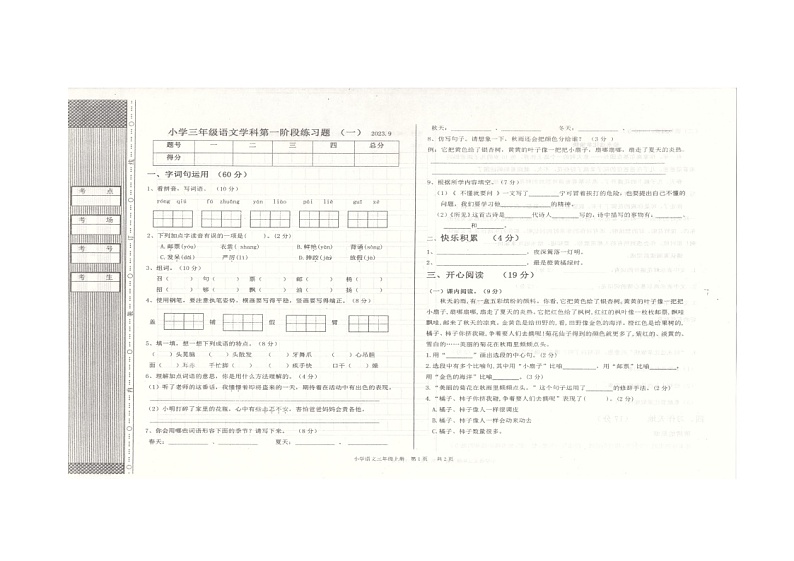 小学三年级语文学科第一阶段练习题 （一） 2023.9
题号 一 二 三 四 总分
得分
考 点
考 场
考 号
考 生
一、字词句运用 （60分）
1、看拼音，写词语。（10分）
2、下列加点字读音有误的一项是( )。(2分)
3、组词。(10分)
4、使用钢笔，要注意执笔姿势，横画要写得平稳，竖画要写得正。(8分)
5、填一填，想一想下列成语的特点。(8分)
( )头莫脑 ( )头散发 ( )牙舞爪 ( )心吊胆
面( )耳赤 手忙脚( ) 摇头( )脑 口干( )燥
6、理解加点词语的意思，你是用什么方法理解的。(4分)
(1) 听了老师的这番话，我憧憬着即将来的一天，期待着在活动中有出色的表现。
(2) 小明打碎了家里的花瓶，心中有些忐忑不安，害怕爸爸妈妈会责备他。
7、你会用哪些词语形容下面的季节？请写下来。（8分）
春天： 夏天：
秋天： 冬天：
8、仿写句子。请想象一下，秋雨还会把颜色分给谁？（3分）
例：它把黄色给了银杏树，黄黄的叶子像一把把小扇子，扇哪扇哪，扇走了夏天的炎热。
9、根据所学内容填空。(7分)
(1)《 不懂就要问 》一文写了 宁可冒着挨打的危险，也要提出自己不懂的
问题，我们要学习他 的精神。
(2)《所见》这首古诗是 代诗人 写的，诗中描写的事物有： 、
和 。
二、快乐积累 （4分）
1、 ，夜深篱落一灯明。
2、 ，最是橙黄橘绿时。
三、开心阅读 （19分）
(一) 课内阅读。(9分)
秋天的雨，有一盒五彩缤纷的颜料。你看，它把黄色给了银杏树，黄黄的叶子像一把把
小扇子，扇哪扇哪，扇走了夏天的炎热。它把红色给了枫树，红红的枫叶像一枚枚邮票，飘哇
飘哇，邮来了秋天的凉爽。金黄色是给田野的，看，田野像金色的海洋。橙红色是给果树的，
橘子、柿子你挤我碰，争着要人们去摘呢！菊花仙子得到的颜色就更多了，紫红的、淡黄的、
雪白的……美丽的菊花在秋雨里频频点头。
1.用“ ”画出选段的中心句。(2分)
2.选段中有多个比喻句，其中用“小扇子”比喻 ，用“邮票”比喻 ，
用“金色的海洋”比喻 。(3分)
3.“美丽的菊花在秋雨里频频点头。”这个句子运用了 的修辞手法。(2分)
4.“橘子、柿子你挤我碰，争着要人们去摘呢”表现了( )。(2分)
A.橘子、柿子像人一样很调皮
B.橘子、柿子像人一样会动来动去
C.橘子、柿子数量很多。
小学语文三年级上册 第1页 共2页